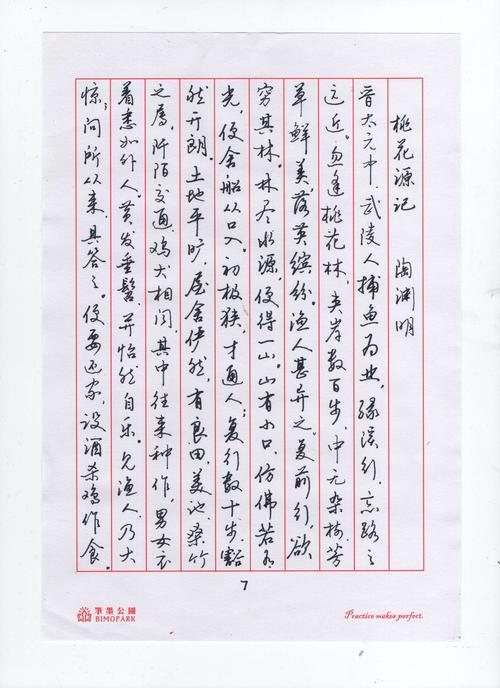 桃花源记 陶渊明
晋太元中，武陵人捕鱼为业，缘溪行，忘路之
远近。忽逢桃花林，夹岸数百步，中无杂树，芳
草鲜美，落英缤纷。渔人甚异之。复前行，欲
穷其林。林尽水源，便得一山。山有小口，仿佛若有
光，便舍船从口入。初极狭，才通人；复行数十步，豁
然开朗。土地平旷，屋舍俨然，有良田，美池，桑竹
之属，阡陌交通，鸡犬相闻。其中往来种作，男女衣
着悉如外人。黄发垂髫，并怡然自乐。见渔人，乃大
惊；问所从来，具答之。便要还家，设酒杀鸡作食。
7
筆墨公園
BIMOPARK
Practice makes perfect.